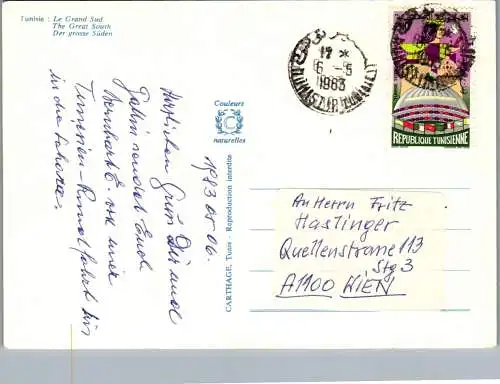 Tunisie : Le Grand Sud
The Great South
Der grosse Süden
1983 05 06.
Herzlichen Gruß Dir und
Gattin sendet Euch
Bernhard E. von einer
Tunesien-Rundfahrt bis
in die Sahara.
Couleurs
C
naturelles
CARTHAGE, Tunis - Reproduction interdite
17 *
6 -5
1983
REPUBLIQUE TUNISIENNE
An Herrn Fritz
Haslinger
Quellenstrasse 113
Stg 3
A1100 WIEN